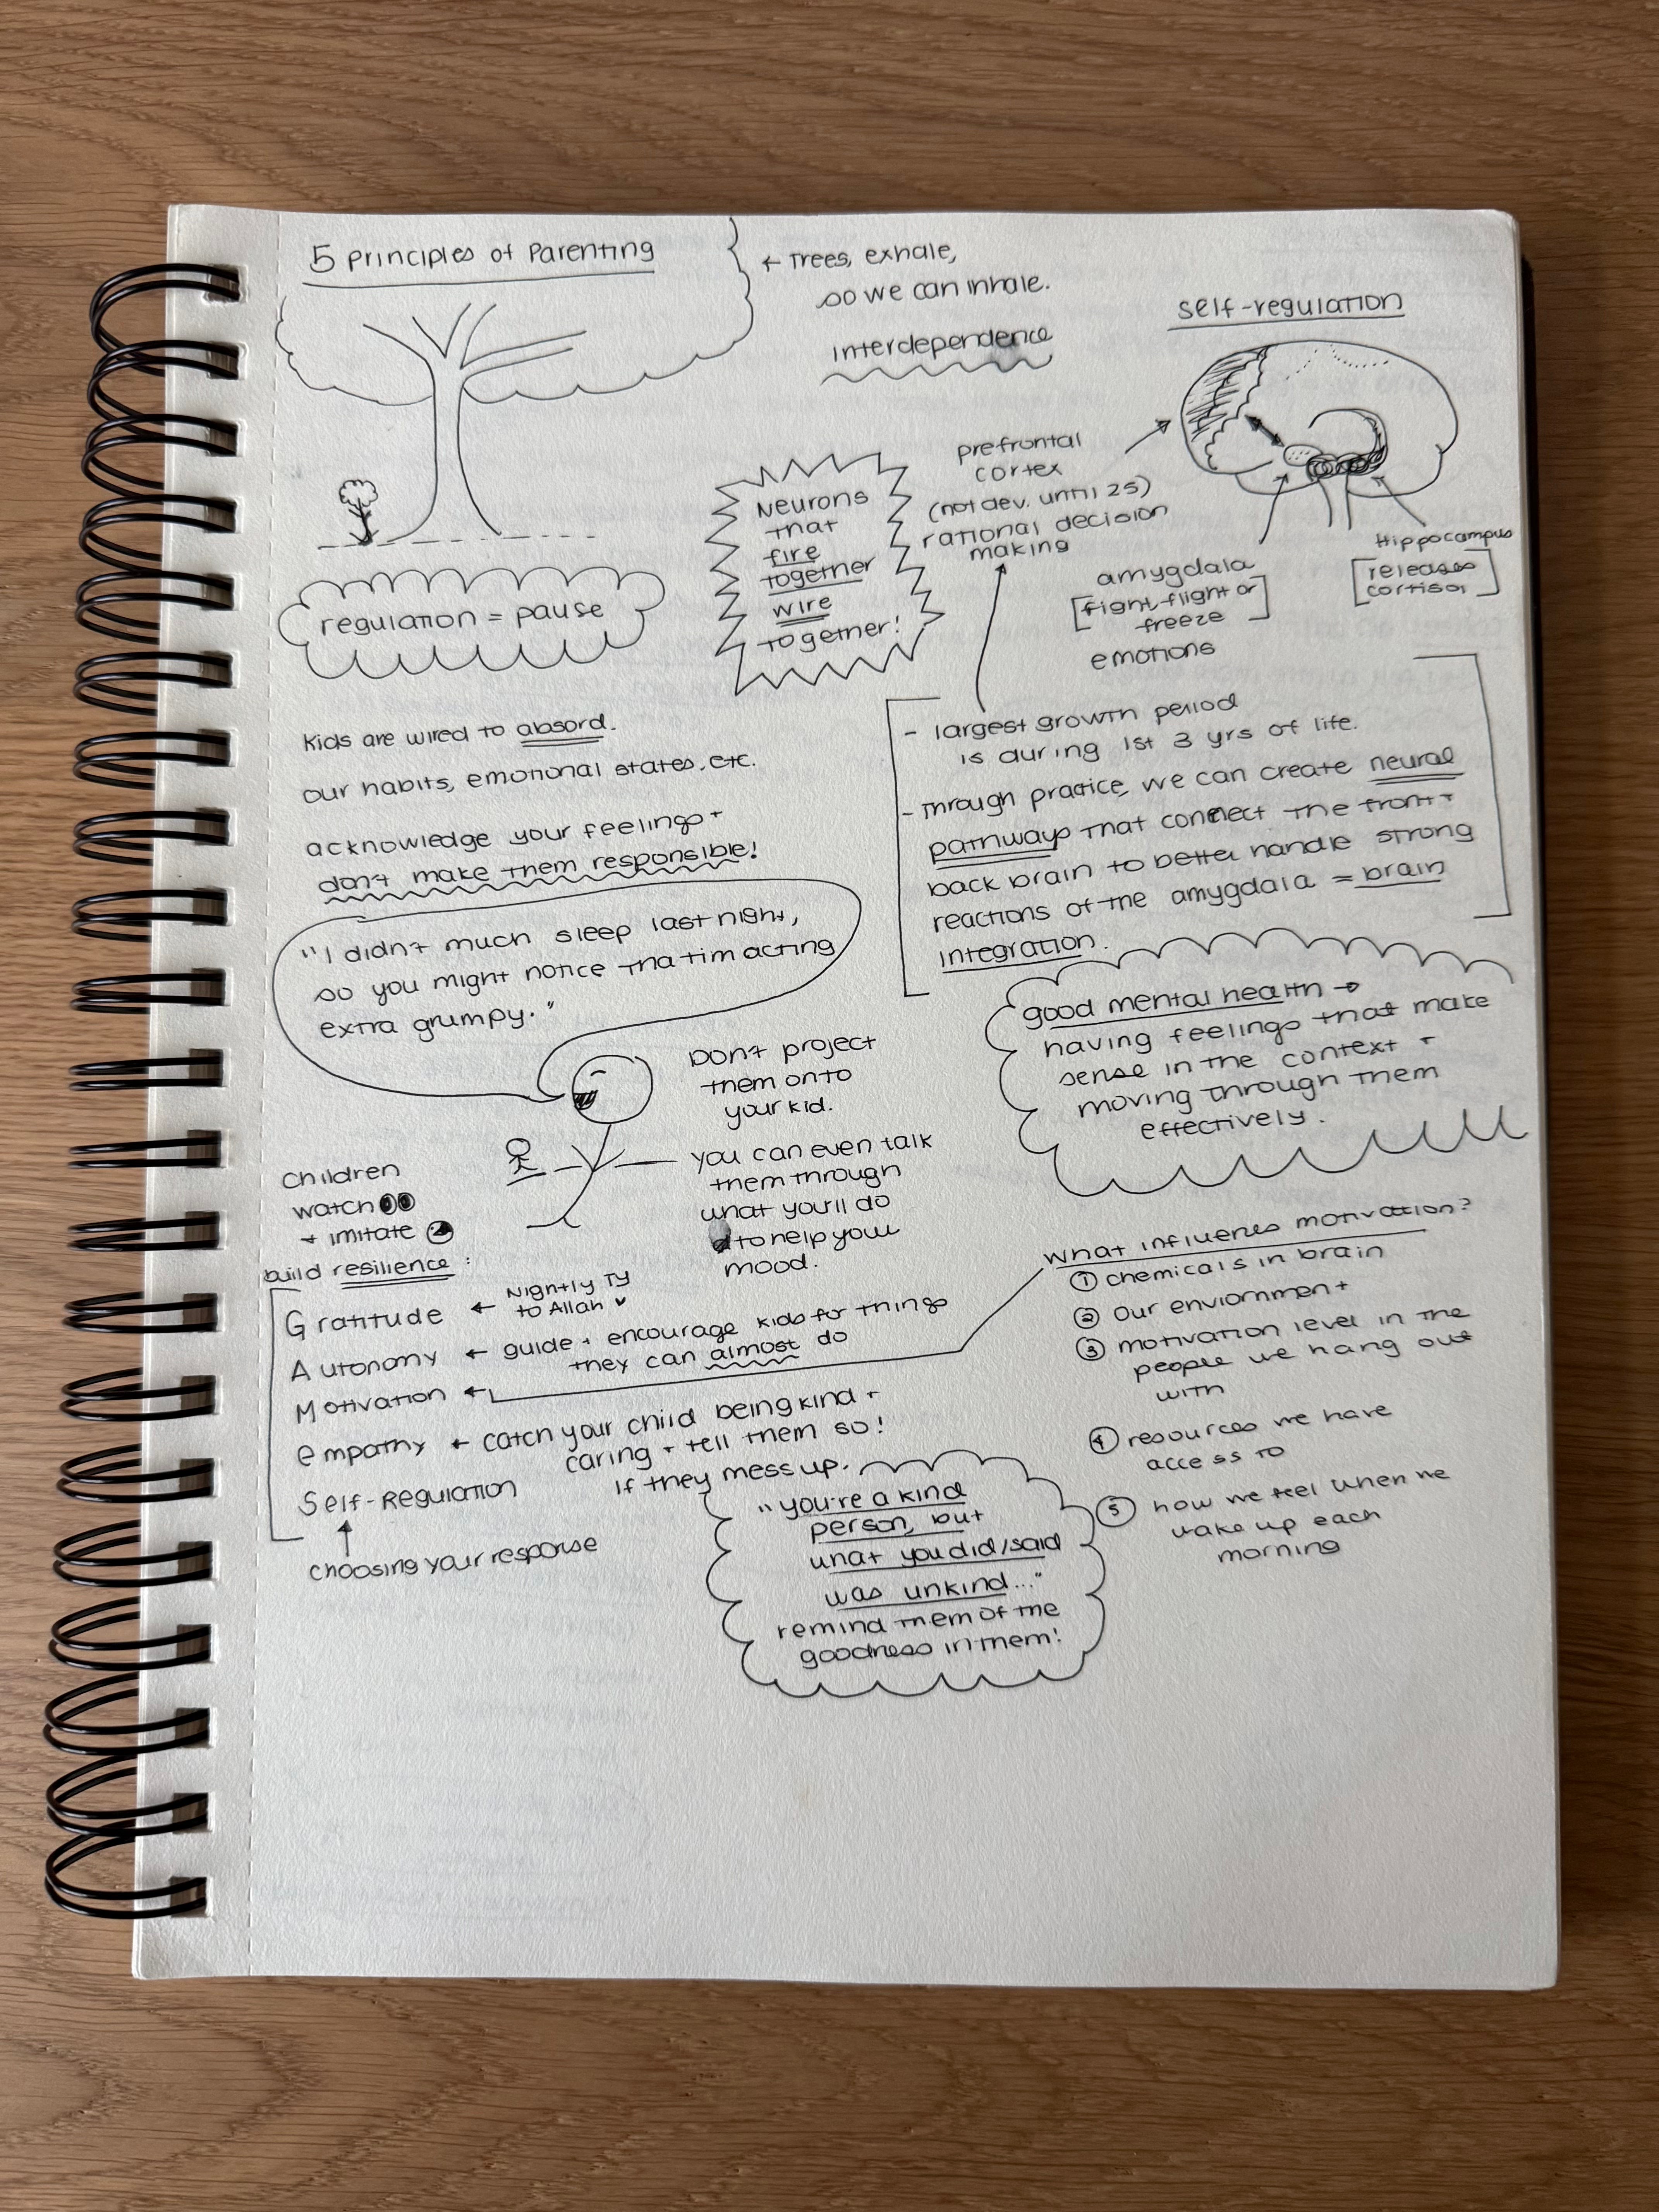 5 Principles of Parenting
← Trees, exhale,
so we can inhale.
interdependence
self-regulation
prefrontal
cortex
(not dev. until 25)
rational decision
making
Neurons
that
fire
together
wire
together!
amygdala
[fight, flight or
freeze]
emotions
Hippocampus
[releases
cortisol]
regulation = pause
kids are wired to absord.
our habits, emotional states, etc.
acknowledge your feelings +
don't make them responsible!
"I didn't much sleep last night,
so you might notice that im acting
extra grumpy."
- largest growth period
is during 1st 3 yrs of life.
- through practice, we can create neural
pathways that connect the front +
back brain to better handle strong
reactions of the amygdala = brain
integration.
good mental health →
having feelings that make
sense in the context +
moving through them
effectively.
Don't project
them onto
your kid.
you can even talk
them through
what you'll do
to help your
mood.
Children
watch
+ imitate
build resilience:
Gratitude ← Nightly TY
to Allah ♥
Autonomy ← guide + encourage kids for things
they can almost do
Motivation ←
empathy ← catch your child being kind +
caring + tell them so!
Self-Regulation
↑
choosing your response
If they mess up.
"you're a kind
person, but
what you did/said
was unkind..."
remind them of the
goodness in them!
What influenes motivation?
① chemicals in brain
② Our enviornment
③ motivation level in the
people we hang out
with
④ resources we have
access to
⑤ how we feel when we
wake up each
morning